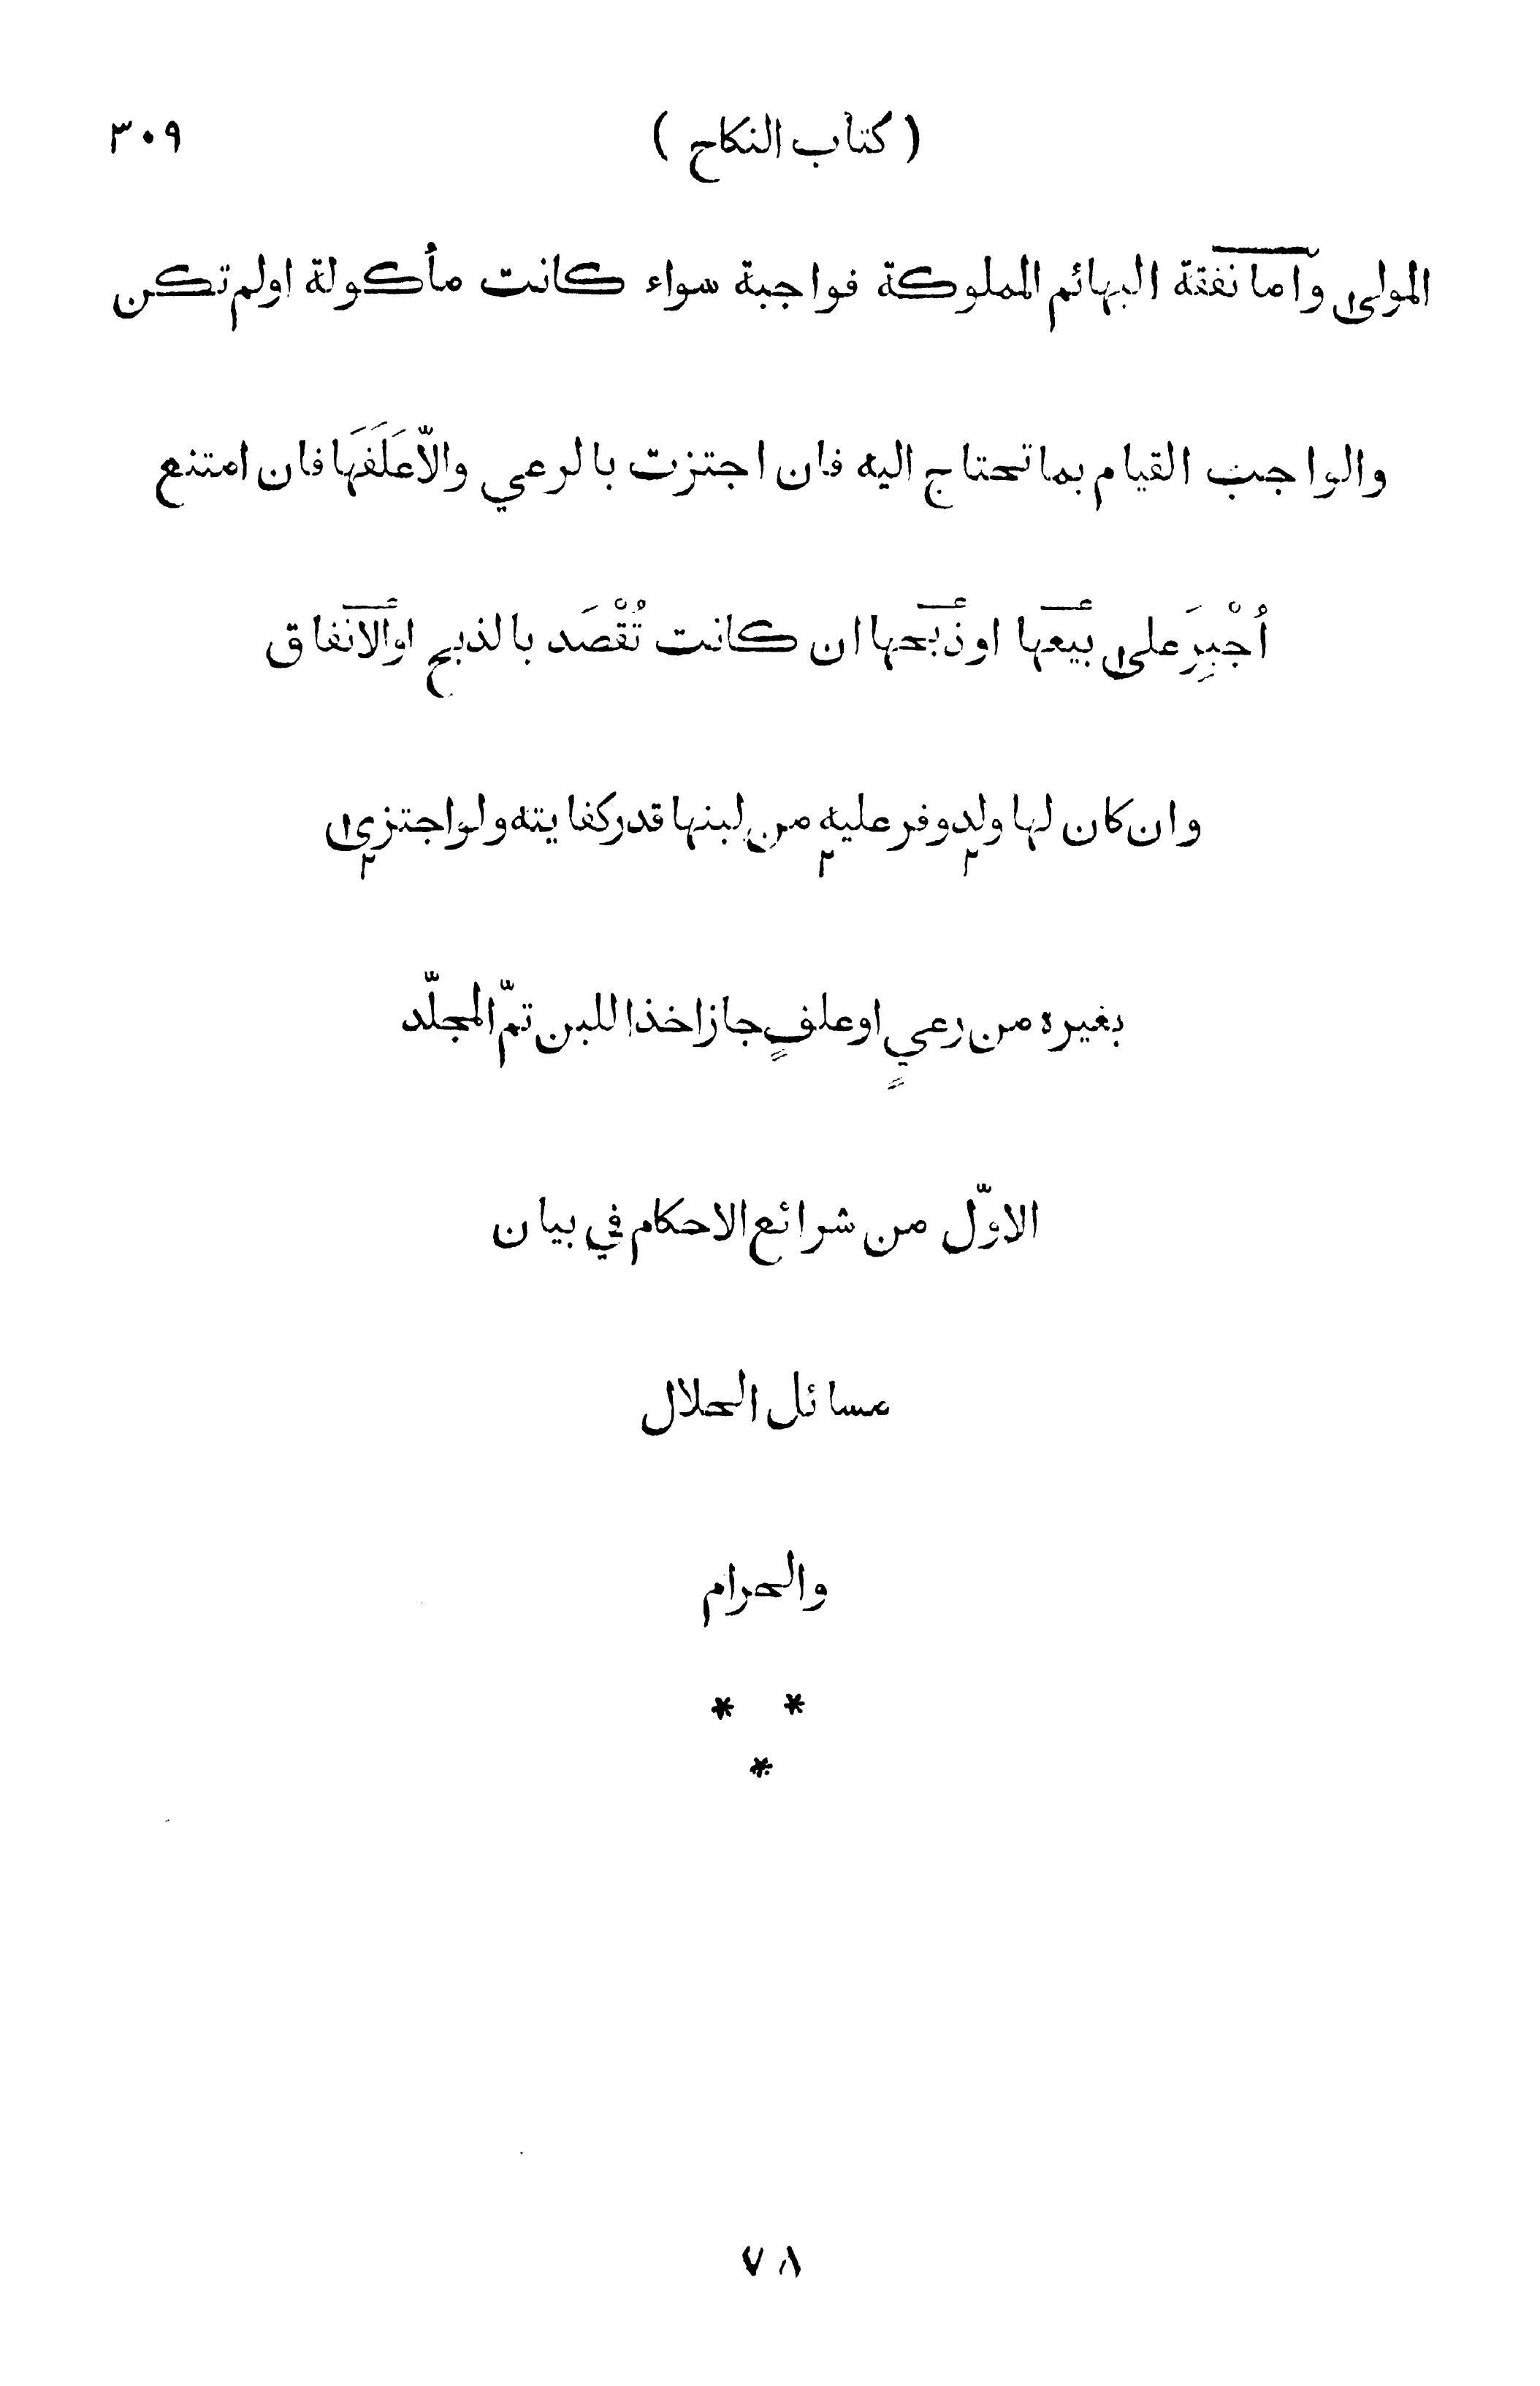 ( كتاب النكاح ) ٣٠٩
المولى واما نفقة البهائم المملوكة فواجبة سواء كانت مأكولة اولم تكن
والواجب القيام بما تحتاج اليه فان اجتزت بالرعي والاّ عَلَفَها فان امتنع
أُجْبِرَ على بيعها او ذبحها ان كانت تُقْصَد بالذبح او الانفاق
وان كان لها ولد وفر عليه من لبنها قدر كفايته ولو اجتزى
بغيره من رعيٍ او علفٍ جاز اخذ اللبن تمّ المجلّد
الاوّل من شرائع الاحكام في بيان
مسائل الحلال
والحرام
* *
*
٧٨